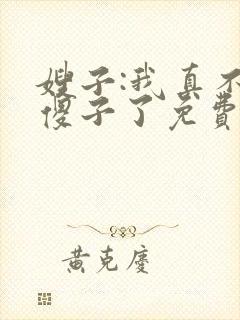 嫂子:我真不
傻子了免费
黄克庆